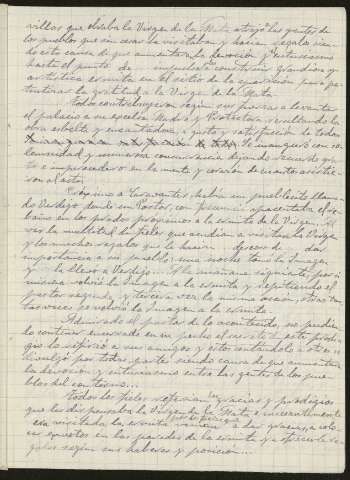 villas que obraba la Virgen de la Mata atrajo las gentes de
los pueblos que en cerca la visitaban y hacian regalos sien-
do esta causa de que aumentara la devoción y entusiasmo
hasta el punto de construir grandiosa y
artística ermita en el sitio de la aparición para per-
petuar la gratitud a la Virgen de la Mata.
Todos contribuyeron según sus fuerzas a levantar
el palacio a su excelsa Madre y Protectora resultando la
obra esbelta y encantadora, a gusto y satisfacción de todos
Se inauguró con so-
lemnidad y numerosa concurrencia dejando recuerdo gra-
to e imperecedero en la mente y corazón de cuantos asistie-
ron al acto.
Próximo a Caravantes, había un pueblecito llama-
do Verdejo donde un Pastor, con frecuencia apacentaba el re-
baño en los prados próximos a la ermita de la Virgen. Al
ver la multitud de fieles que acudían a visitar la Virgen
y los muchos regalos que le hacían, deseoso de dar
importancia a su pueblo, una noche tomó la Imagen
y la llevó a Verdejo. A la mañana siguiente por sí
misma volvió la Imagen a la ermita y repitiendo el
pastor segunda y tercera vez la misma acción, otras tan-
tas veces se volvió la Imagen a la ermita.
Admirado el pastor de lo acontecido, no pudien-
do contener encerrado en su pecho el secreto de este prodi-
gio lo refirió a sus amigos y éstos contándolo a otros se
divulgó por todas partes siendo causa de que aumentara
la devoción y entusiasmo entre las gentes de los pue-
blos del contorno...
Todos los fieles referían gracias y prodigios
que les dispensaba la Virgen de la Mata e incesantemente
era visitada la ermita a dar gracias, a colo-
car exvotos en las paredes de la ermita y a ofrecerle re-
galos según sus haberes y posición...